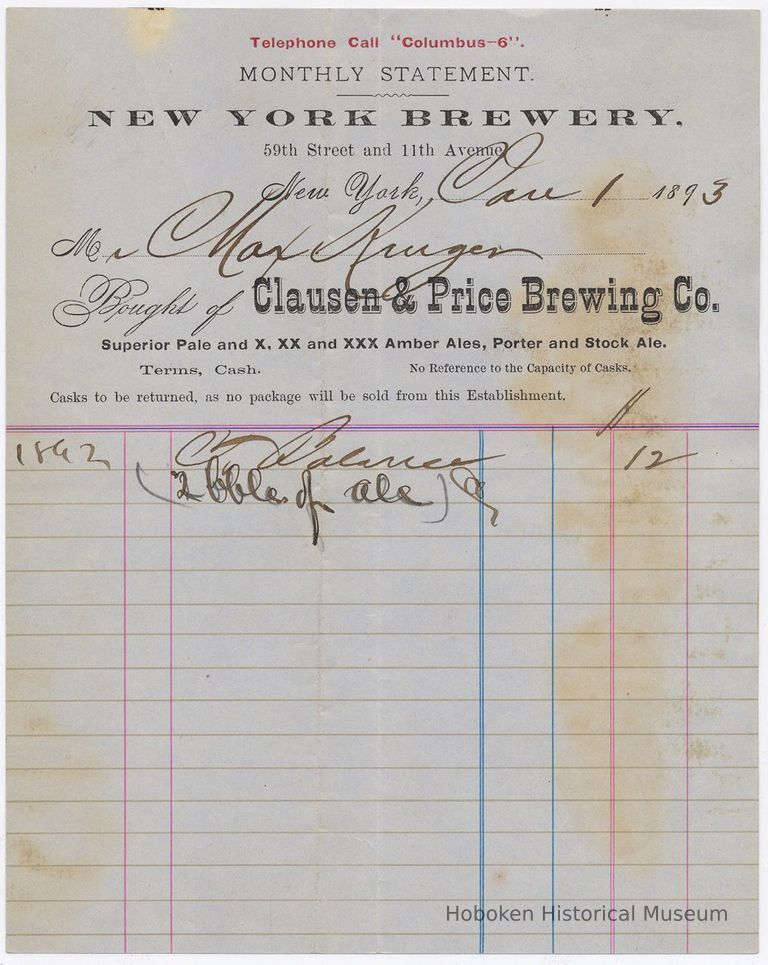 Telephone Call "Columbus-6".
MONTHLY STATEMENT.
NEW YORK BREWERY,
59th Street and 11th Avenue
New York, Jan 1 1893
Mr Max Kruger
Bought of Clausen & Price Brewing Co.
Superior Pale and X, XX and XXX Amber Ales, Porter and Stock Ale.
Terms, Cash. No Reference to the Capacity of Casks.
Casks to be returned, as no package will be sold from this Establishment.
1892 To Balance 12
(2 bbls of ale)
Hoboken Historical Museum